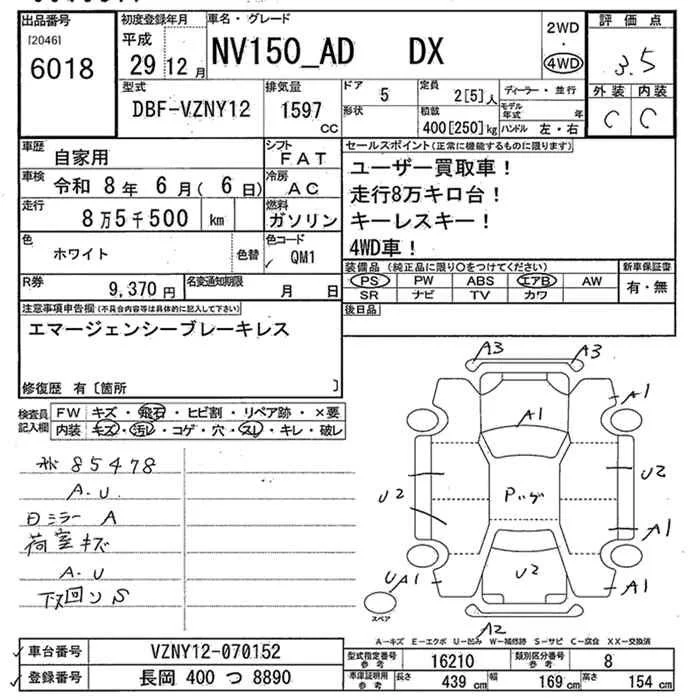 出品番号
[2046]
6018
初度登録年月
平成
29 12 月
車名・グレード
NV150_AD DX
2WD
・
4WD
評価点
3.5
外装 内装
C C
型式
DBF-VZNY12
排気量
1597
cc
ドア
5
形状
定員
2[5]人
積載
400[250]kg
ディーラー・並行
モデル年式 年
ハンドル 左・右
車歴
自家用
シフト
FAT
車検
令和 8年 6月( 6日)
冷房
AC
走行
8万5千500 km
燃料
ガソリン
色
ホワイト
色替
色コード
QM1
R券
9,370 円
名変通知期限
月 日
セールスポイント(正常に機能するものに限ります)
ユーザー買取車!
走行8万キロ台!
キーレスキー!
4WD車!
装備品(純正品に限り○をつけてください)
PS PW ABS エアB AW
SR ナビ TV カワ
新車保証書
有・無
後日品
注意事項申告欄(不具合内容等は具体的に記入して下さい)
エマージェンシーブレーキレス
修復歴 有〔箇所 〕
検査員記入欄
FW キズ・飛石・ヒビ割・リペア跡・×要
内装 キズ・汚レ・コゲ・穴・スレ・キレ・破レ
85478
A.U
ミラー A
荷室キズ
A.U
下回り S
A3 A3
A1
A1
U2
U2
A1
A1
U2
UA1
A2
スペア
A-キズ E-エクボ U-凹み W-補修跡 S-サビ C-腐食 XX-交換済
車台番号
VZNY12-070152
登録番号
長岡 400 つ 8890
型式指定番号
参考
16210
類別区分番号
参考
8
車庫証明用
参考
長さ
439 cm
幅
169 cm
高さ
154 cm